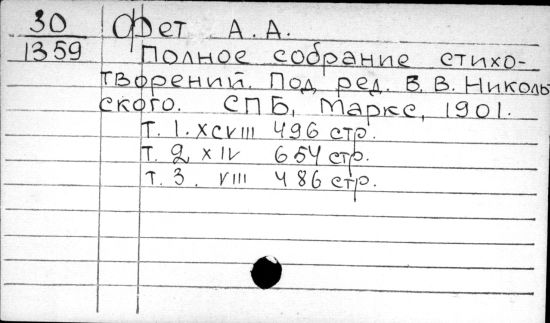 30
1359
Фет А.А.
Полное собрание стихо-
творений. Под ред. Б. В. Николь
ского. СПБ, Маркс, 1901.
т. 1. XCVIII 496 стр.
т. 2 XIV 654 стр.
т. 3. VIII 486 стр.